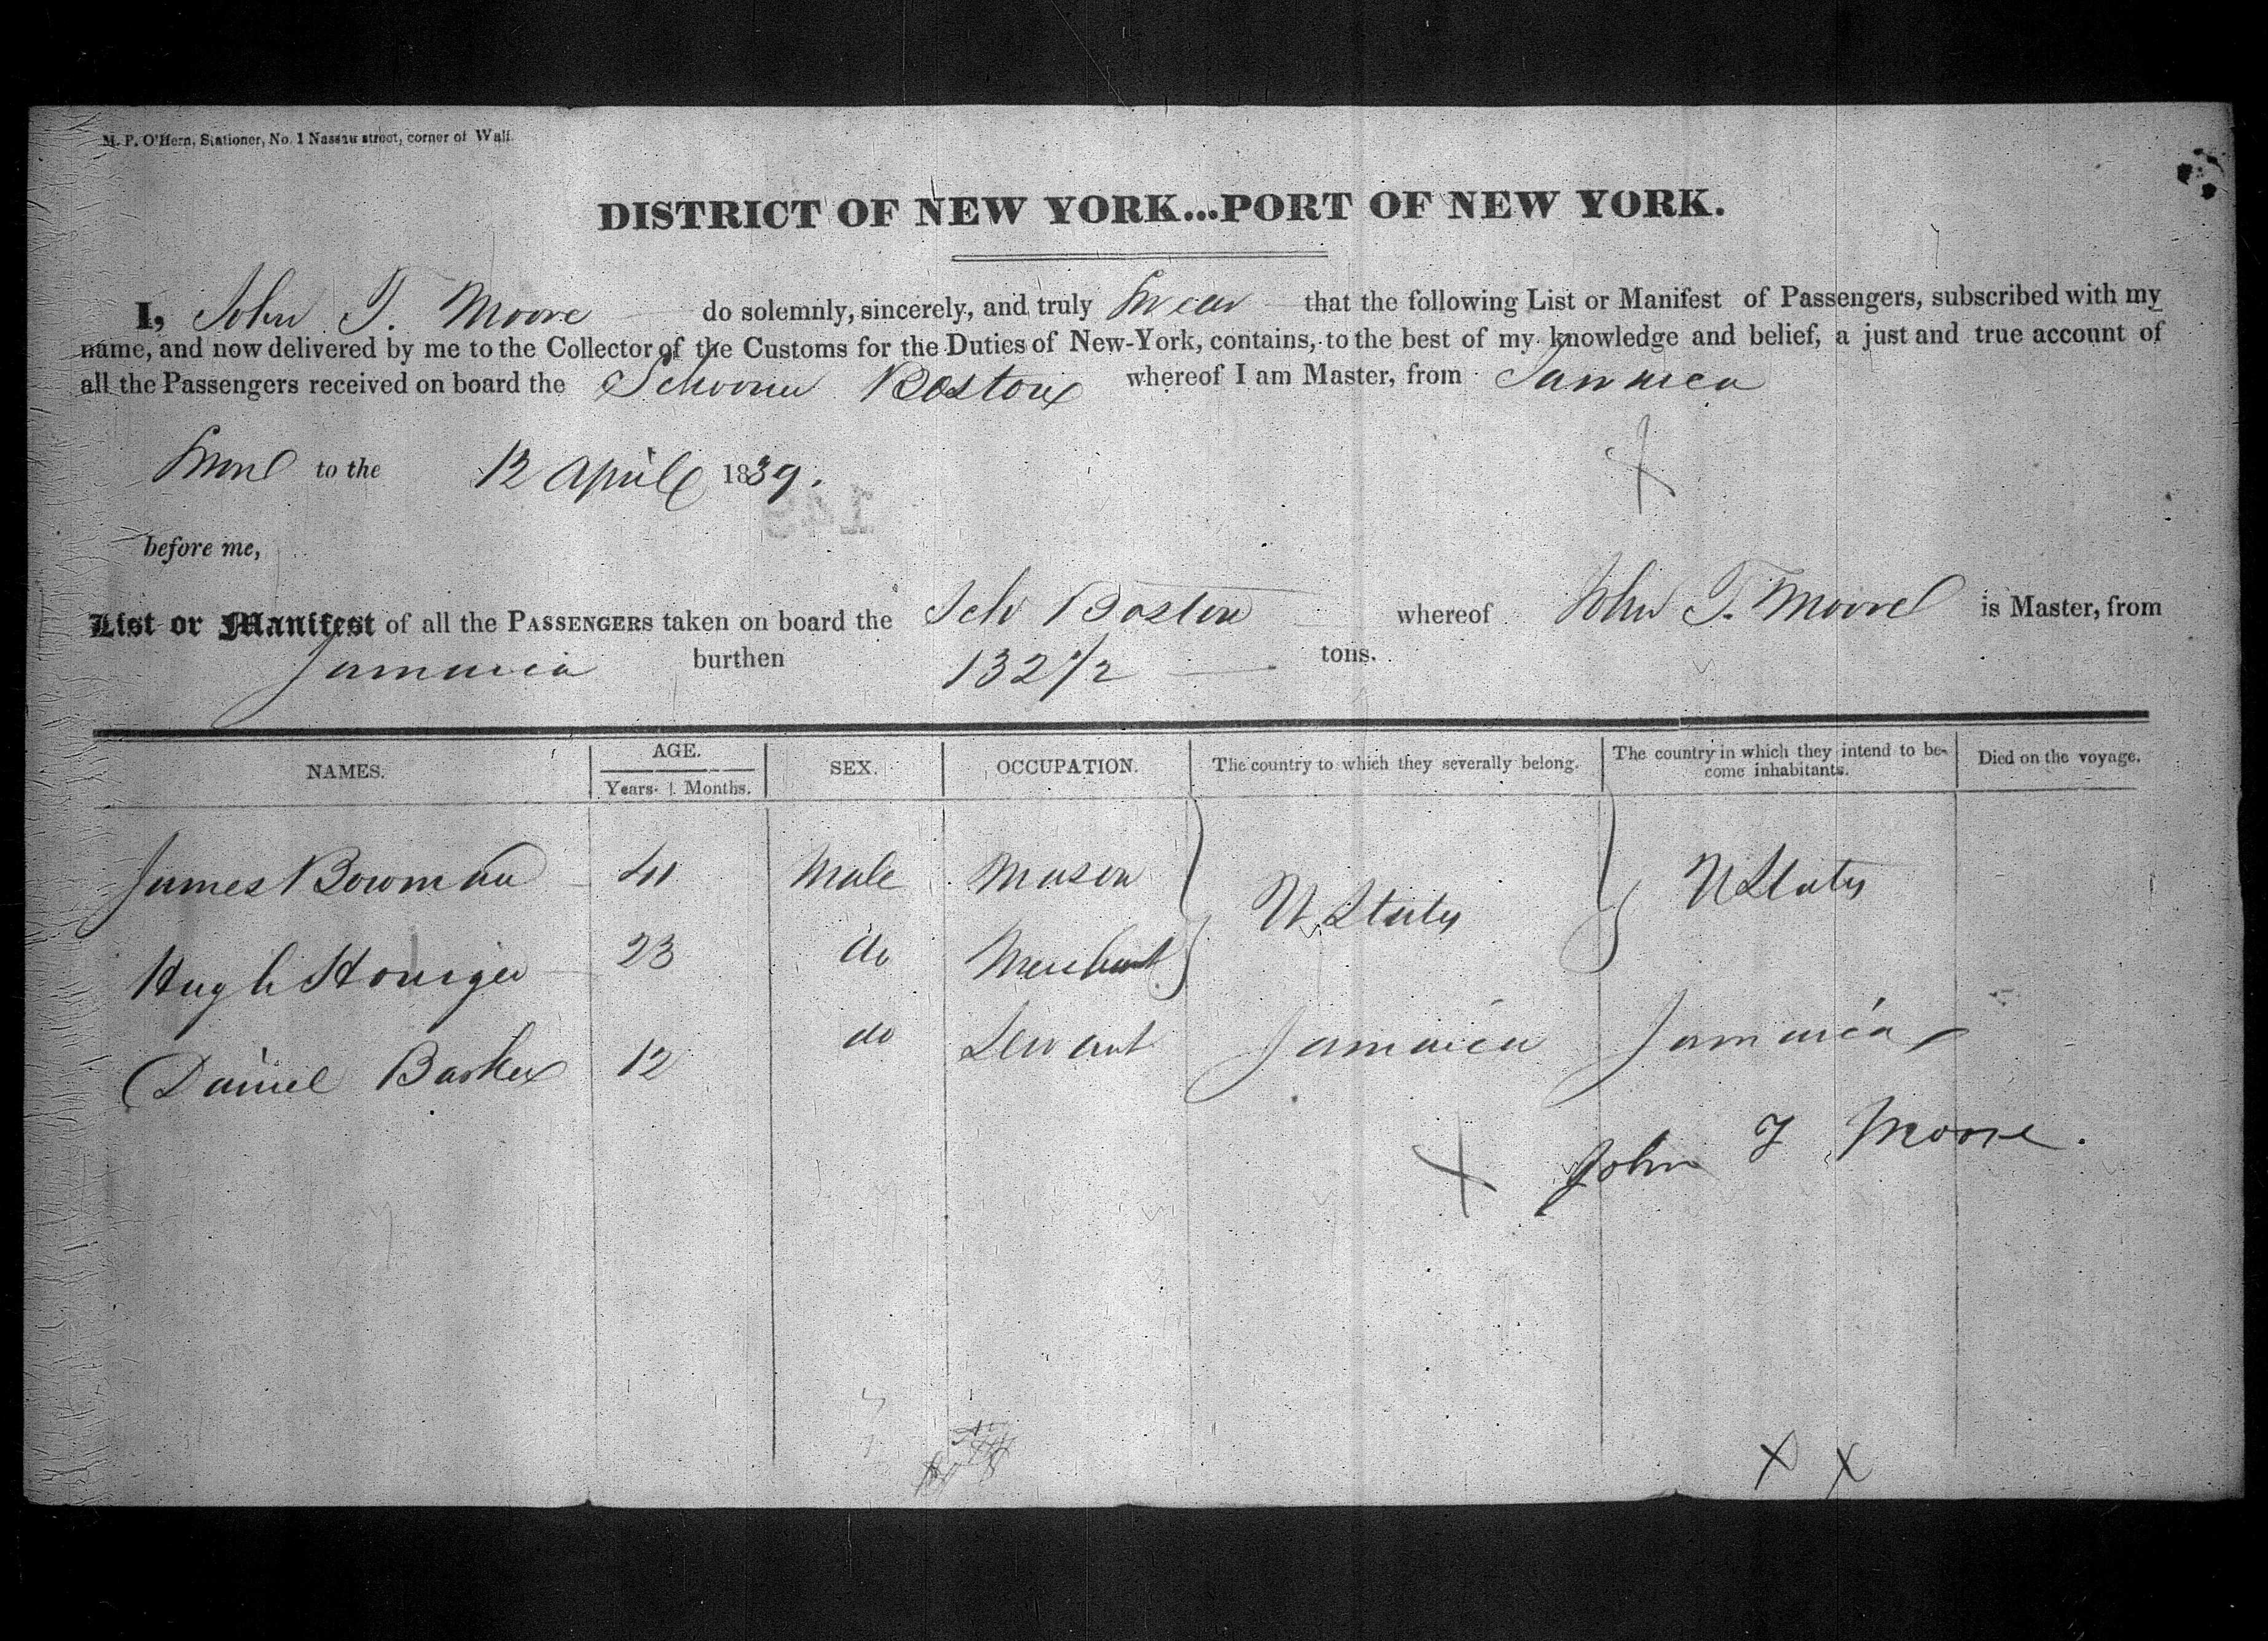 M. P. O'Hern, Stationer, No. 1 Nassau street, corner of Wall.
DISTRICT OF NEW YORK...PORT OF NEW YORK.
I, John T. Moore do solemnly, sincerely, and truly Swear that the following List or Manifest of Passengers, subscribed with my
name, and now delivered by me to the Collector of the Customs for the Duties of New-York, contains, to the best of my knowledge and belief, a just and true account of
all the Passengers received on board the Schooner Boston whereof I am Master, from Jamaica
to the 12 April 1839.
149
before me,
List or Manifest of all the PASSENGERS taken on board the Sch Boston whereof John T. Moore is Master, from
Jamaica burthen 132 1/2 tons.
NAMES. AGE. SEX. OCCUPATION. The country to which they severally belong. The country in which they intend to be- Died on the voyage.
Years. Months. come inhabitants.
James Bowman 41 Male Mason U States U States
Hugh 23 do Merchant
Daniel Barker 12 do Servant Jamaica Jamaica
X John T Moore.
X X